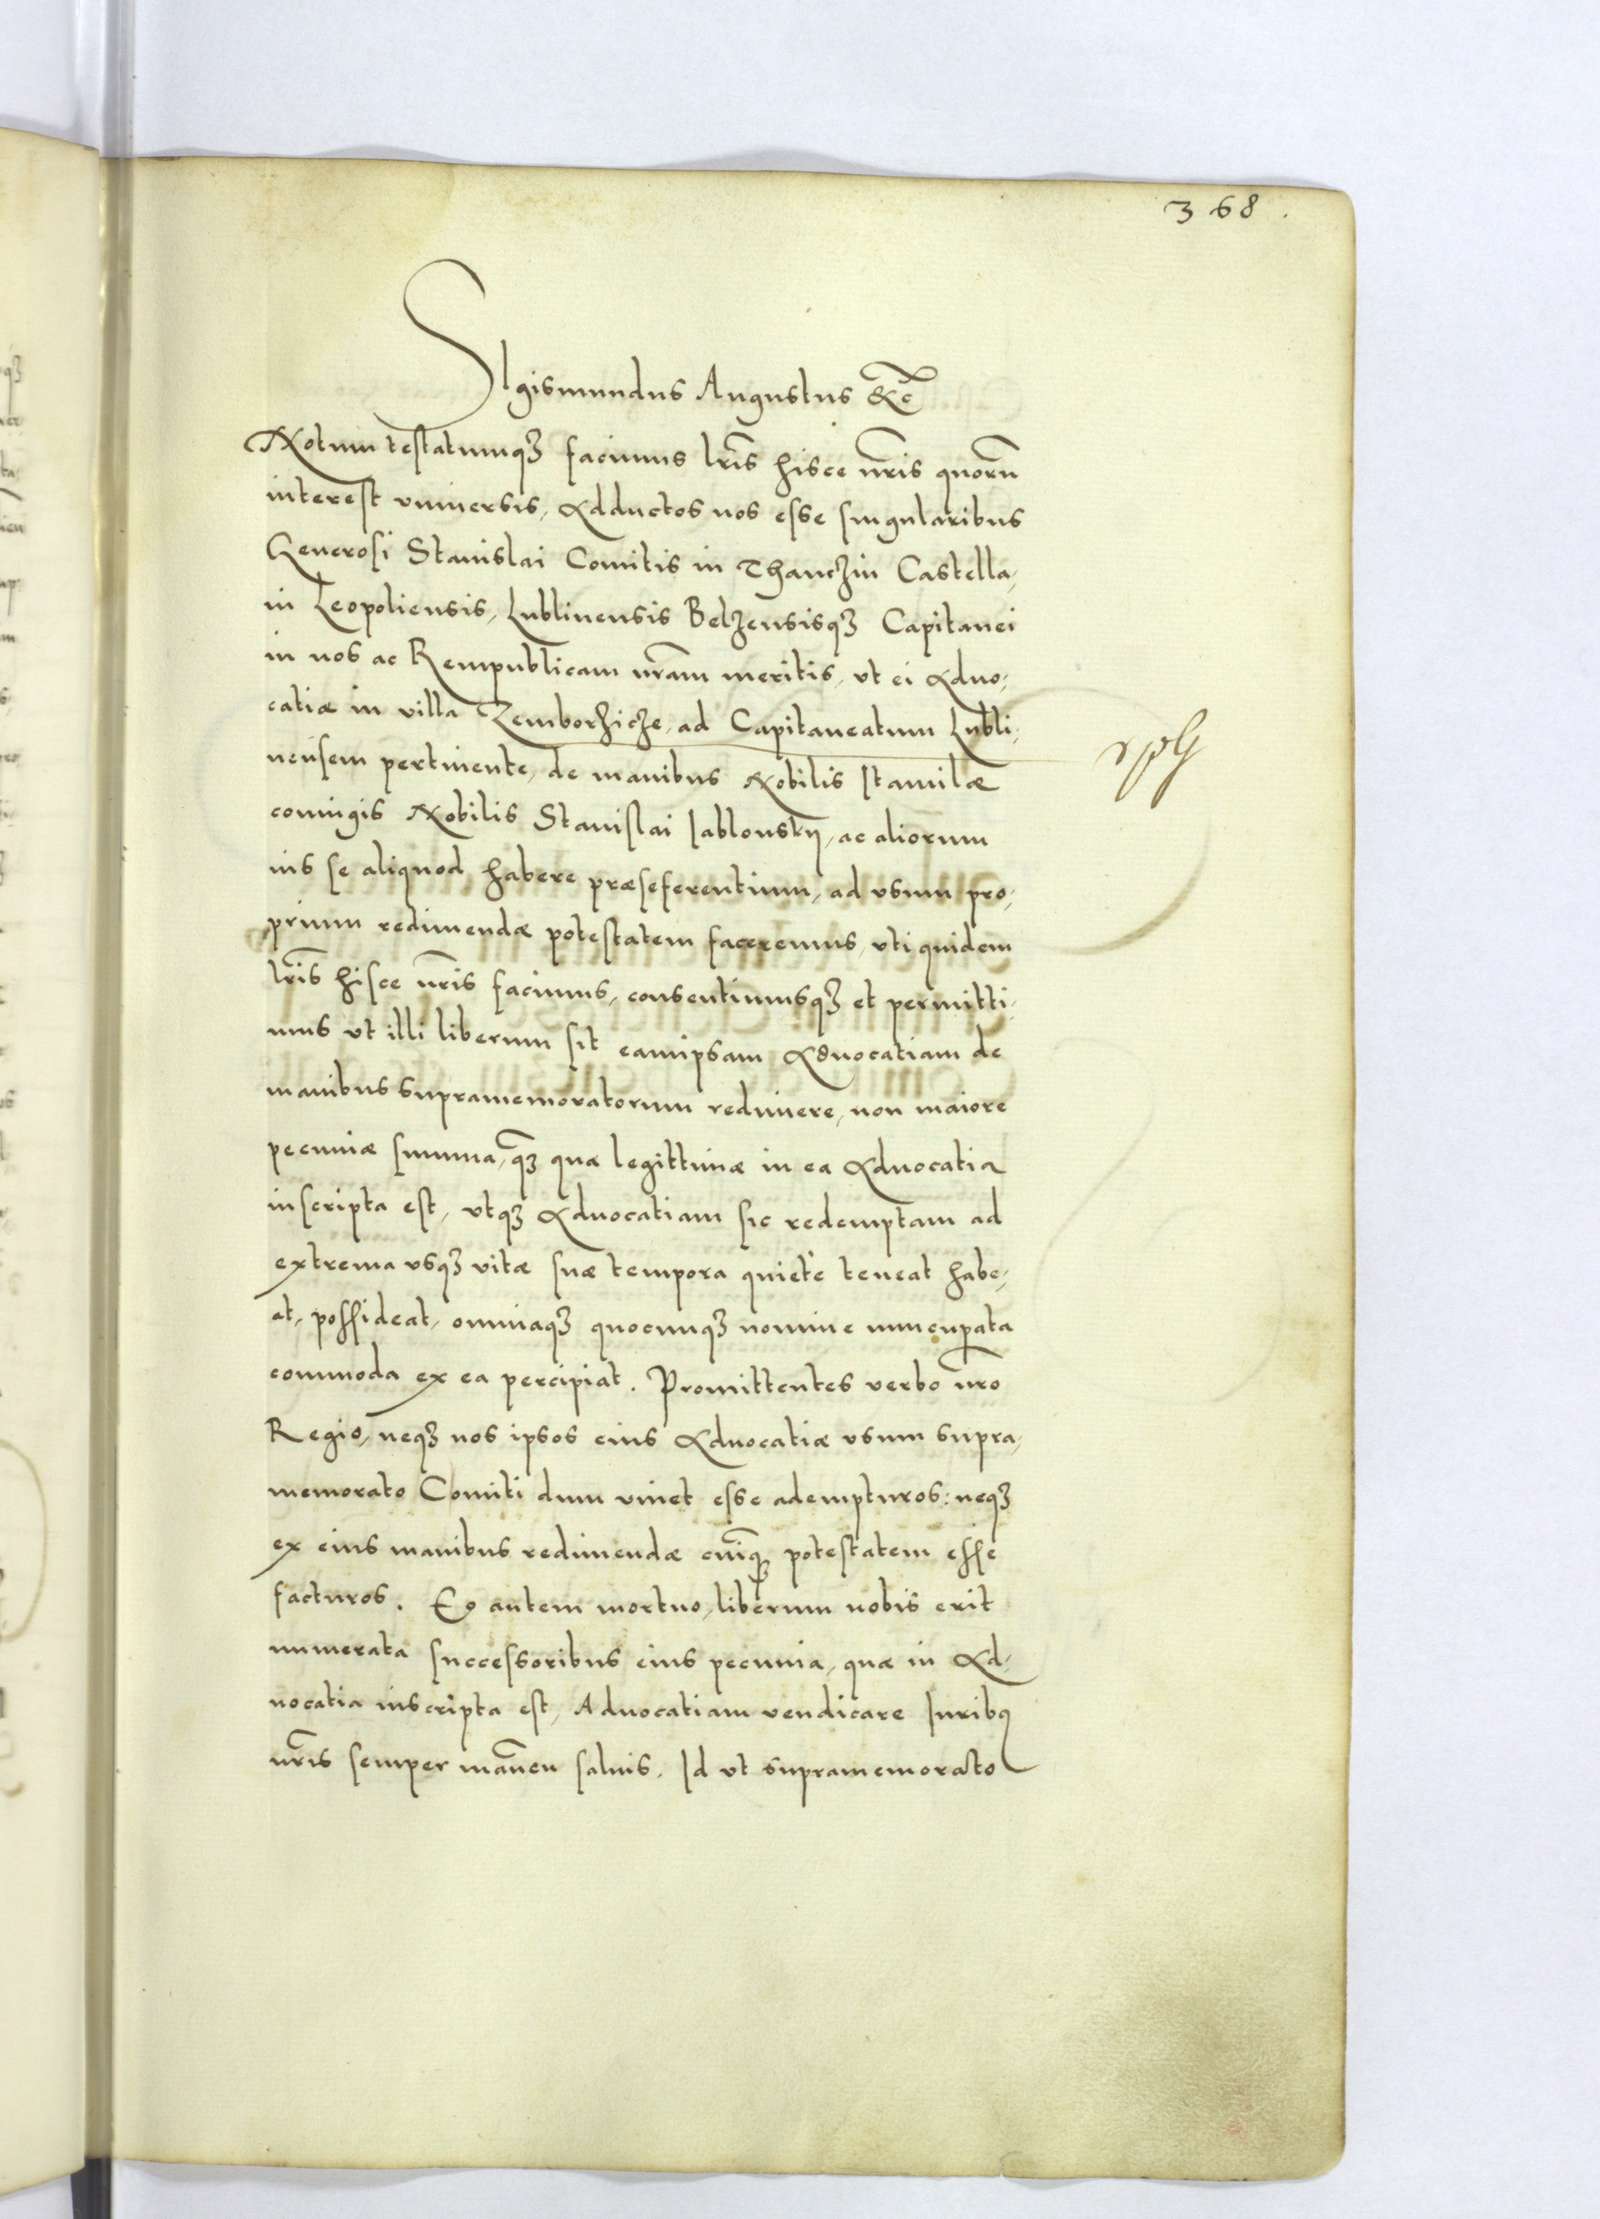 368
SIgismundus Augustus &c̃
Notum testatumq3 facimus lr̃is hisce nr̃is quorũ
interest vniuersis, Adductos nos esse singularibus
Generosi Stanislai Comitis in Thanczin Castella,
ni Leopoliensis, Lublinensis Belzensisq3 Capitanei
in nos ac Rempublicam nr̃am meritis, vt ei Aduo,
catiæ in villa Zemborzicze, ad Capitaneatum Lubli,
nensem pertinente, de manibus Nobilis Itamilæ
coniugis Nobilis Stanislai Iablonskÿ, ac aliorum
ius se aliquod habere præseferentium, ad vsum pro,
prium redimendæ potestatem faceremus, vti quidem
lr̃is hisce nr̃is facimus, consentimusq3 et permitti,
mus vt illi liberum sit eamipsam Aduocatiam de
manibus supramemoratorum redimere, non maiore
pecuniæ summa, q̃3 quæ legittimæ in ea Aduocatia
inscripta est, vtq3 Aduocatiam sic redemptam ad
extrema vsq3 vitæ suæ tempora quietè teneat habe,
at, possideat, omniaq3 quocunq3 nomine nuncupata
commoda ex ea percipiat. Promittentes verbo nr̃o
Regio, neq3 nos ipsos eius Aduocatiæ vsum supra,
memorato Comiti dum viuet esse adempturos: neq3
ex eius manibus redimendæ cuiq̃3 potestatem esse
facturos. Eo autem mortuo, liberum nobis erit
numerata successoribus eius pecunia, quæ in Ad,
uocatia inscripta est, Aduocatiam vendicare Iurib9
nr̃is semper mañen saluis. Id vt supramemorato